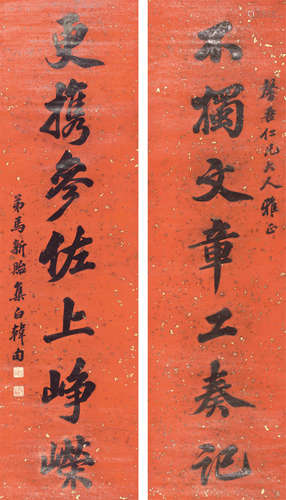 馨吾仁兄大人雅正
不獨文章工奏記
更攜參佐上崢嶸
弟馬新貽集白韓句